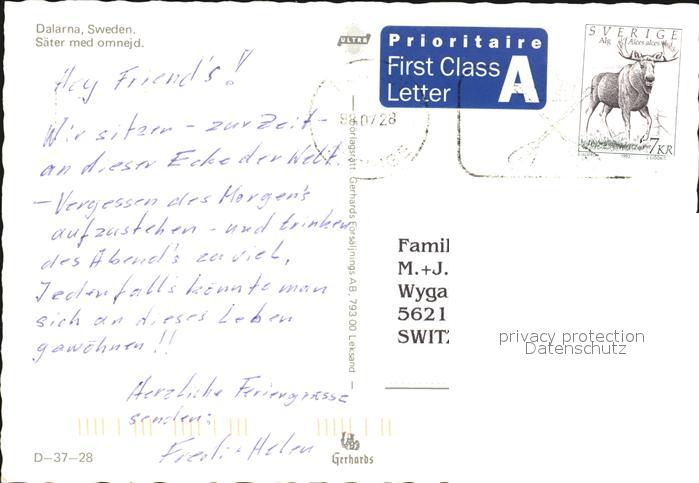 Dalarna, Sweden.
Säter med omnejd.
ULTRA
Prioritaire
First Class
Letter
A
SVERIGE
Älg Alces alces
7 KR
98.07.28
Hey Friend's!
Wir sitzen - zur Zeit -
an dieser Ecke der Welt.
- Vergessen des Morgen's
aufzustehen - und trinken
des Abend's zu viel,
Jedenfall's könnte man
sich an dieses Leben
gewöhnen!!
Herzliche Feriengrüsse
senden:
Fredi + Helen
Förlagsrätt Gerhards Försäljnings AB, 793 00 Leksand
Famil
M.+J.
Wyga
5621
SWITZ
privacy protection
Datenschutz
D-37-28
Gerhards